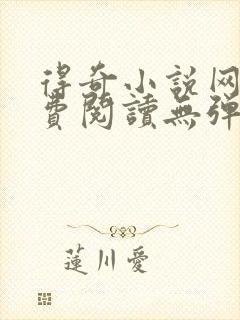 得奇小説网
费閱讀無弹
蓮川愛